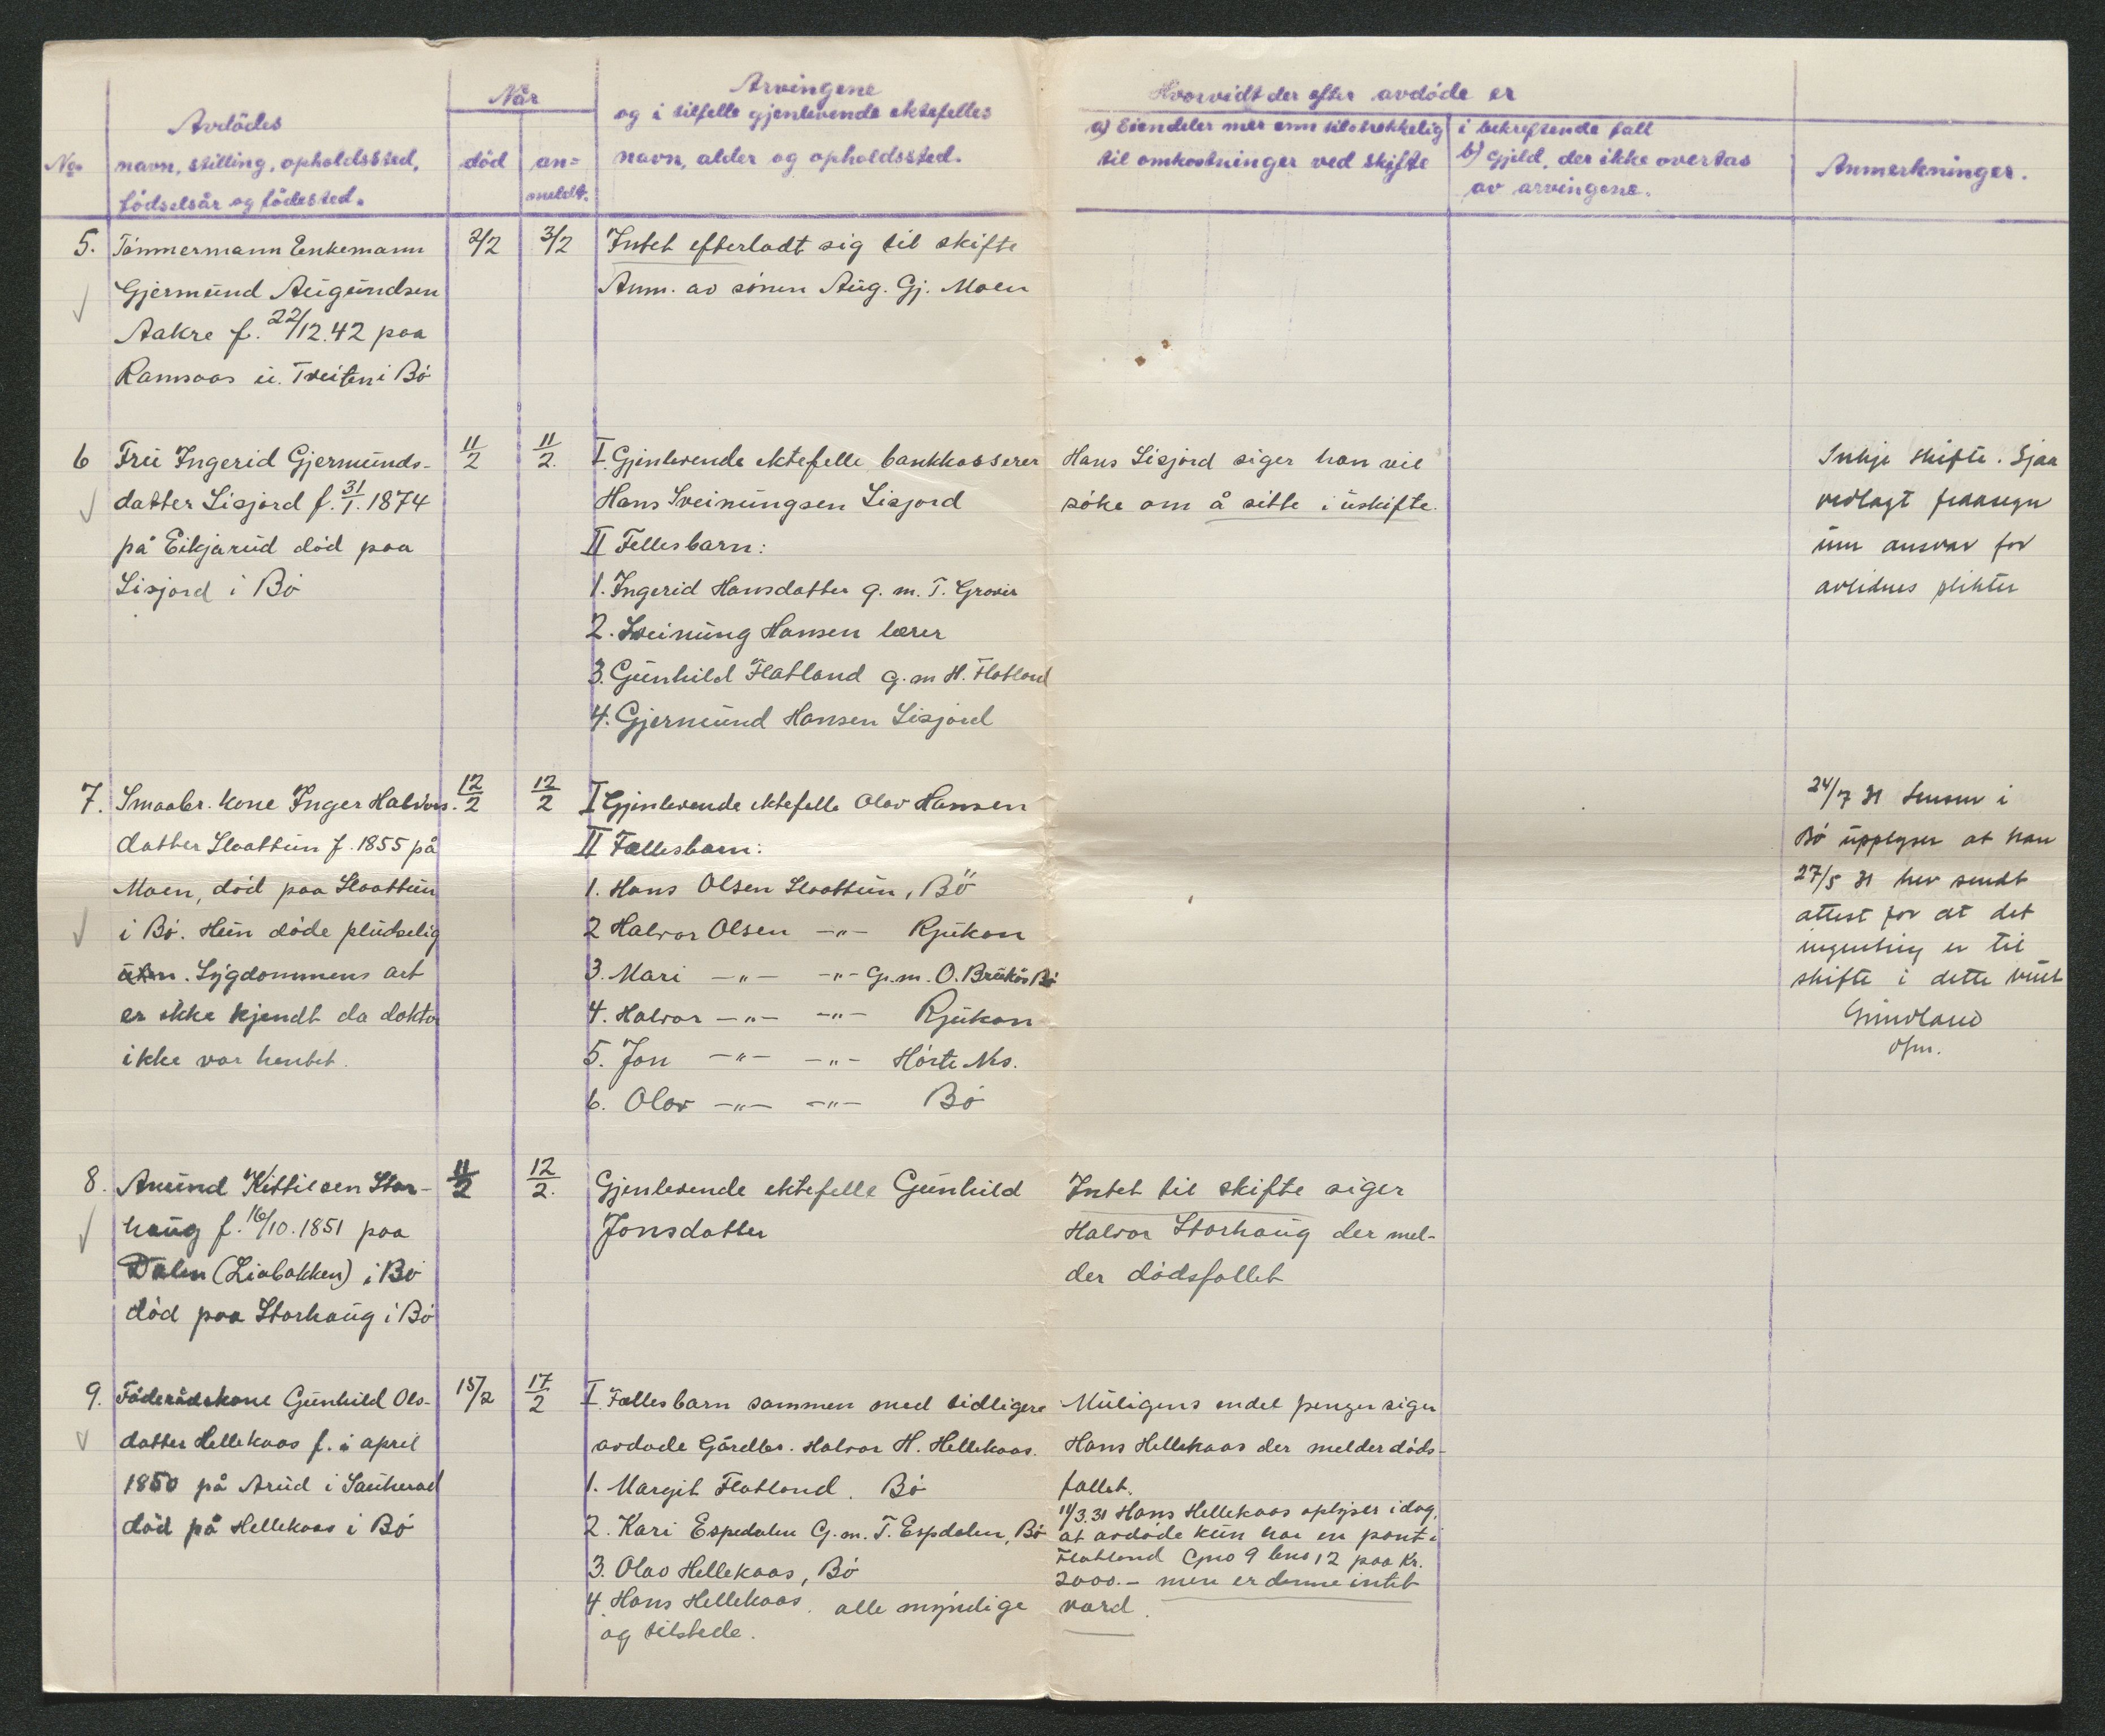 No.
Avdödes
navn, stilling, opholdssted,
födselsår og födested.
Når
död
an=
meldt.
Arvingene
og i tilfelle gjenlevende ektefelles
navn, alder og opholdssted.
Hvorvidt der efter avdöde er
a) Eiendeler mer enn tilstrekkelig
til omkostninger ved skifte
i bekreftende fall
b) Gjeld, der ikke overtas
av arvingene.
Anmerkninger.
5. Tömmermann Enkemann
Gjermund Augundsen
Aakre f. 22/12.42 paa
Ramsaas u. Tveiten i Bö
2/2
3/2
Intet efterladt sig til skifte
Anm. av sönen Aug. Gj. Moen
6 Fru Ingerid Gjermunds-
datter Lisjord f. 31/1. 1874
på Eikjarud död paa
Lisjord i Bö
11/2
11/2.
I. Gjenlevende ektefelle bankkasserer
Hans Sveinungsen Lisjord
II Fellesbarn:
1. Ingerid Hansdatter g. m. T. Grover
2. Sveinung Hansen lærer
3. Gunhild Flatland g. m H. Flatland
4. Gjermund Hansen Lisjord
Hans Lisjord siger han vil
söke om å sitte i uskifte.
Inkje skifte. Sjaa
vedlagt fraasegn
um ansvar for
avlidnes plikter
7. Smaabr. kone Inger Halvors.
datter Slaattun f. 1855 på
Moen, död paa Slaattun
i Bö. Hun döde pludselig
. Sygdommens art
er ikke kjendt da doktor
ikke var hentet.
12/2
12/2
I Gjenlevende ektefelle Olav Hansen
II Fællesbarn:
1. Hans Olsen Slaattun, Bö
2 Halvor Olsen -"- Rjukan
3. Mari -"- -"- g. m. O. Brukås Bö
4. Halvor -"- -"- Rjukan
5. Jon -"- -"- Hörte Ns.
6. Olav -"- -"- Bö
24/7 31 Lensm i
Bö upplyser at han
27/5 31 hev sendt
attest for at det
ingenting er til
skifte i dette buet
Grindland
ofm.
8. Amund Kittilsen Stor-
haug f. 16/10. 1851 paa
Dalen (Liabakken) i Bö
död paa Storhaug i Bö
11/2
12/2.
Gjenlevende ektefelle Gunhild
Jonsdatter
Intet til skifte siger
Halvor Storhaug der mel-
der dödsfallet
9. Föderådskone Gunhild Ols-
datter Hellekaas f. i april
1850 på Arud i Sauherad
död på Hellekaas i Bö
15/2
17/2
I Fællesbarn sammen med tidligere
avdöde Gårdbr. Halvor H. Hellekaas.
1. Margit Flatland. Bö
2. Kari Espedalen G. m. T. Espdalen, Bö
3. Olav Hellekaas, Bö
4. Hans Hellekaas. alle myndige
og tilstede.
Muligens endel penger siger
Hans Hellekaas der melder döds-
fallet.
11/3.31 Hans Hellekaas oplyser idag,
at avdöde kun har en pant i
Flatland Gno 9 bno 12 paa Kr.
2000.- men er denne intet
værd.